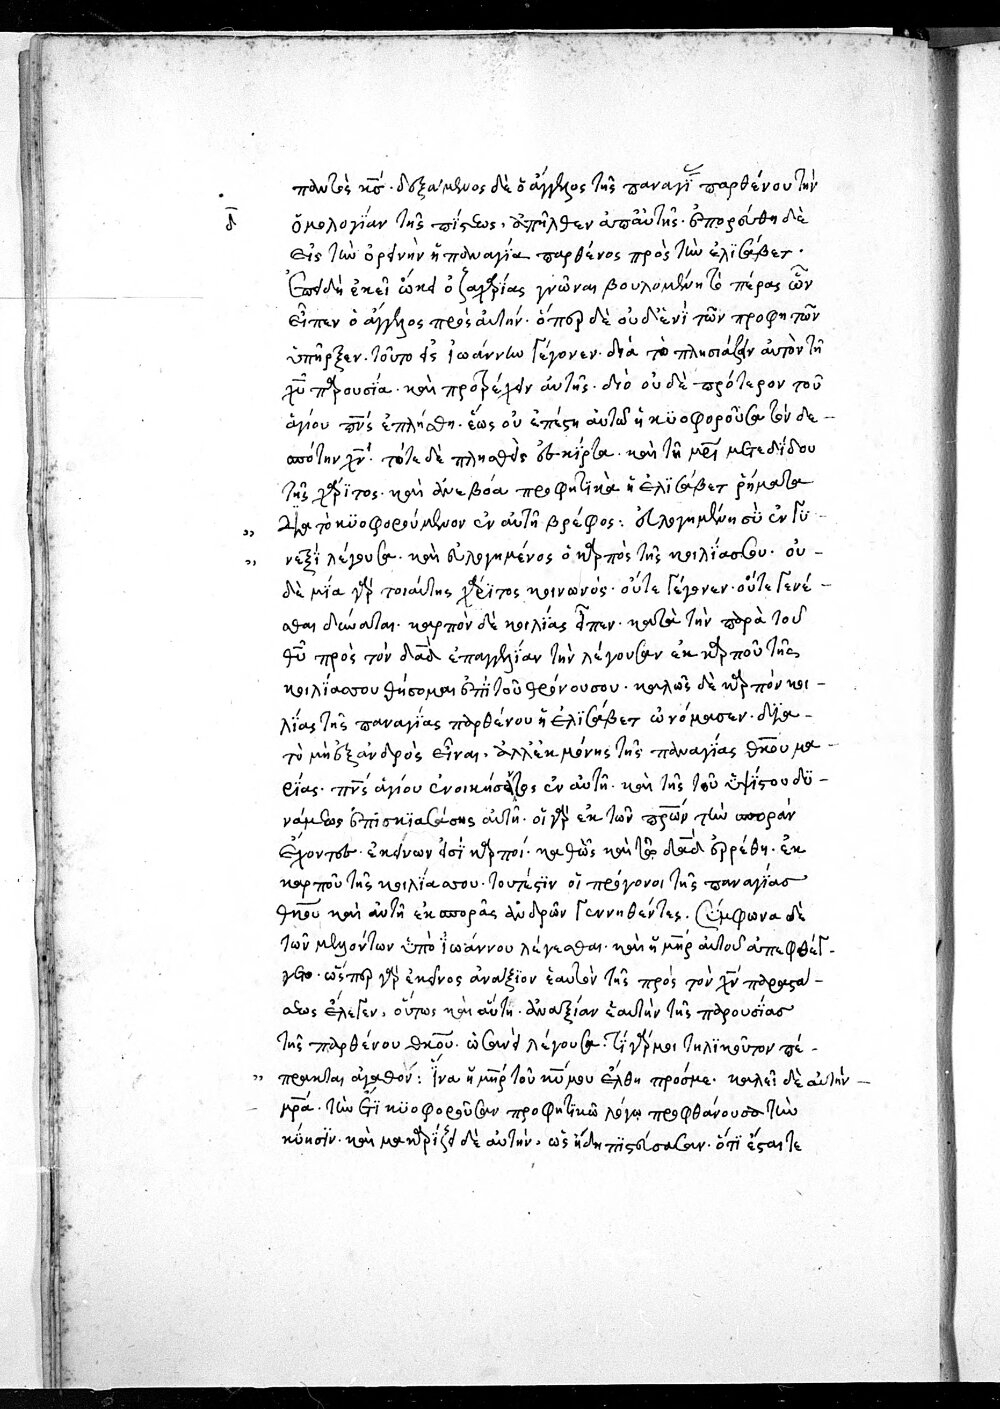 παντὸς κόσμου. δεξάμενος δὲ ὁ ἄγγελος τῆς παναγί παρθένου τὴν
δ
ὁμολογίαν τῆς πίστεως, ἀπῆλθεν ἀπ' αὐτῆς. ἐπορεύθη δὲ
εἰς τὴν ὀρεινὴν ἡ παναγία παρθένος πρὸς τὴν ἐλισάβετ.
ἐπειδὴ ἐκεῖ ὤκει ὁ ζαχαρίας γνῶναι βουλομένη τὸ πέρας ὧν
εἶπεν ὁ ἄγγελος πρὸς αὐτήν. ὅπερ δὲ οὐδενὶ τῶν προφητῶν
ὑπῆρξεν. τοῦτο εἰς ἰωάννην γέγονεν. διὰ τὸ πλησιάζειν αὐτὸν τῇ
χῦ παρουσία. καὶ προτρέχειν αὐτῆς. διὸ οὐδὲ πρότερον τοῦ
ἁγίου πνς ἐπλήσθη. ἕως οὗ ἐπέστη αὐτῶ ἡ κϋοφοροῦσα τὸν δε –
σπότην χν. τότε δὲ πλησθεὶς ἐσκίρτα. καὶ τῇ μρι μετεδίδου
τῆς χάριτος. καὶ ἀνεβόα προφητικὰ ἡ ἐλισάβετ ῥήματα
" διὰ τὸ κϋοφορούμενον ἐν αὐτῇ βρέφος: εὐλογημένη σὺ ἐν γυ –
" ναιξὶ λέγουσα. καὶ εὐλογημένος ὁ καρπὸς τῆς κοιλίας σου. οὐ –
δὲ μία γὰρ τοιαύτης χάριτος κοινωνός. οὔτε γέγονεν. οὔτε γενέ –
σθαι δύναται. καρπὸν δὲ κοιλίας εἶπεν. κατὰ τὴν παρὰ τοῦ
θῦ πρὸς τὸν δαδ ἐπαγγελίαν τὴν λέγουσαν ἐκ καρποῦ τῆς
κοιλίας σου θήσομαι ἐπὶ τοῦ θρόνου σου. καλῶς δὲ καρπὸν κοι –
λίας τῆς παναγίας παρθένου ἡ ἐλισάβετ ὠνόμασεν. διὰ –
τὸ μὴ ἐξ ἀνδρὸς εἶναι, ἀλλ' ἐκ μόνης τῆς παναγίας θκου μα –
ρίας. πνς ἁγίου ἐνοικήσαντος ἐν αὐτῇ. καὶ τῆς τοῦ ὑψίστου δϋ –
νάμεως ἐπισκιασάσης αὐτῇ. οἱ γὰρ ἐκ τῶν πρων τὴν σποράν
ἔχοντες. ἐκείνων εἰσὶ καρποί. καθὼς καὶ τῶ δαδ εὑρέθη. ἐκ
καρποῦ τῆς κοιλίας σου. τουτέστιν οἱ πρόγονοι τῆς παναγίας
θκου καὶ αὐτὴ ἐκ σπορᾶς ἀνδρῶν γεννηθέντες. σύμφωνα δὲ
τῶν μελλόντων ὑπὸ ἰωάννου λέγεσθαι. καὶ ἡ μηρ αὐτοῦ ἀπεφθέγ –
γετο. ὥσπερ γὰρ ἐκεῖνος ἀνάξιον ἑαυτὸν τῆς πρὸς τὸν χν παραστά –
σεως ἔλεγεν, οὕτως καὶ αὕτη. ἀναξίαν ἑαυτὴν τῆς παρουσίας
τῆς παρθένου θκου. ὡσανεὶ λέγουσα. τί γάρ μοι τηλικοῦτον πέ –
" πρακται ἀγαθόν: ἵνα ἡ μηρ τοῦ κυ μου ἔλθη πρός με. καλεῖ δὲ αὐτὴν –
μρα. τὴν ἔτι κϋοφοροῦσαν προφητικῶ λόγω προφθάνουσα τὴν
κύησιν. καὶ μακαρίζει δὲ αὐτὴν, ὡς ἤδη πιστεύσασαν. ὅτι ἔσται τε